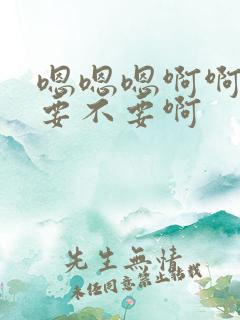 嗯嗯嗯啊啊
要不要啊
先生無情
未经同意禁止转载